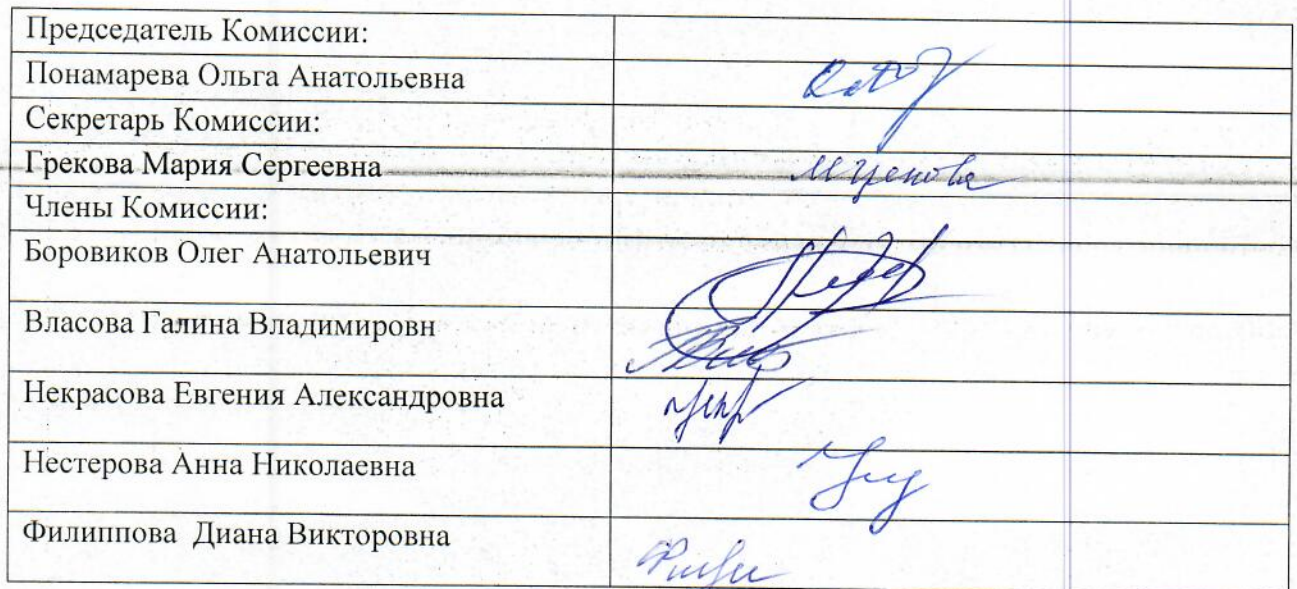 Председатель Комиссии:
Понамарева Ольга Анатольевна
Секретарь Комиссии:
Грекова Мария Сергеевна
МГрекова
Члены Комиссии:
Боровиков Олег Анатольевич
Власова Галина Владимировн
Некрасова Евгения Александровна
Нестерова Анна Николаевна
Филиппова Диана Викторовна